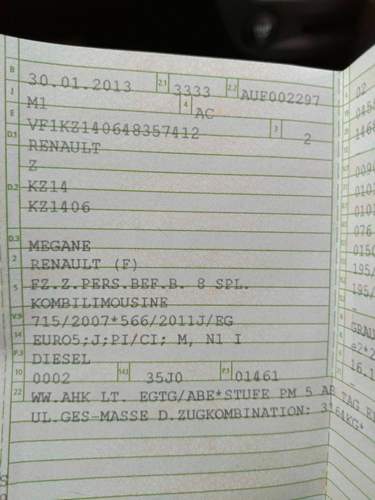 B 30.01.2013 2.1 3333 2.2 AUF002297
J M1 4 AC
E VF1KZ140648357412 3 2
D.1 RENAULT
Z
D.2 KZ14
KZ1406
D.3 MEGANE
2 RENAULT (F)
5 FZ.Z.PERS.BEF.B. 8 SPL.
KOMBILIMOUSINE
V.9 715/2007*566/2011J/EG
14 EURO5;J;PI/CI; M, N1 I
P.3 DIESEL
10 0002 14.1 35J0 P.1 01461
22 WW.AHK LT. EGTG/ABE*STUFE PM 5 AB TAG E
UL.GES-MASSE D.ZUGKOMBINATION:
02
076
195/
195/
GRAU
16.1